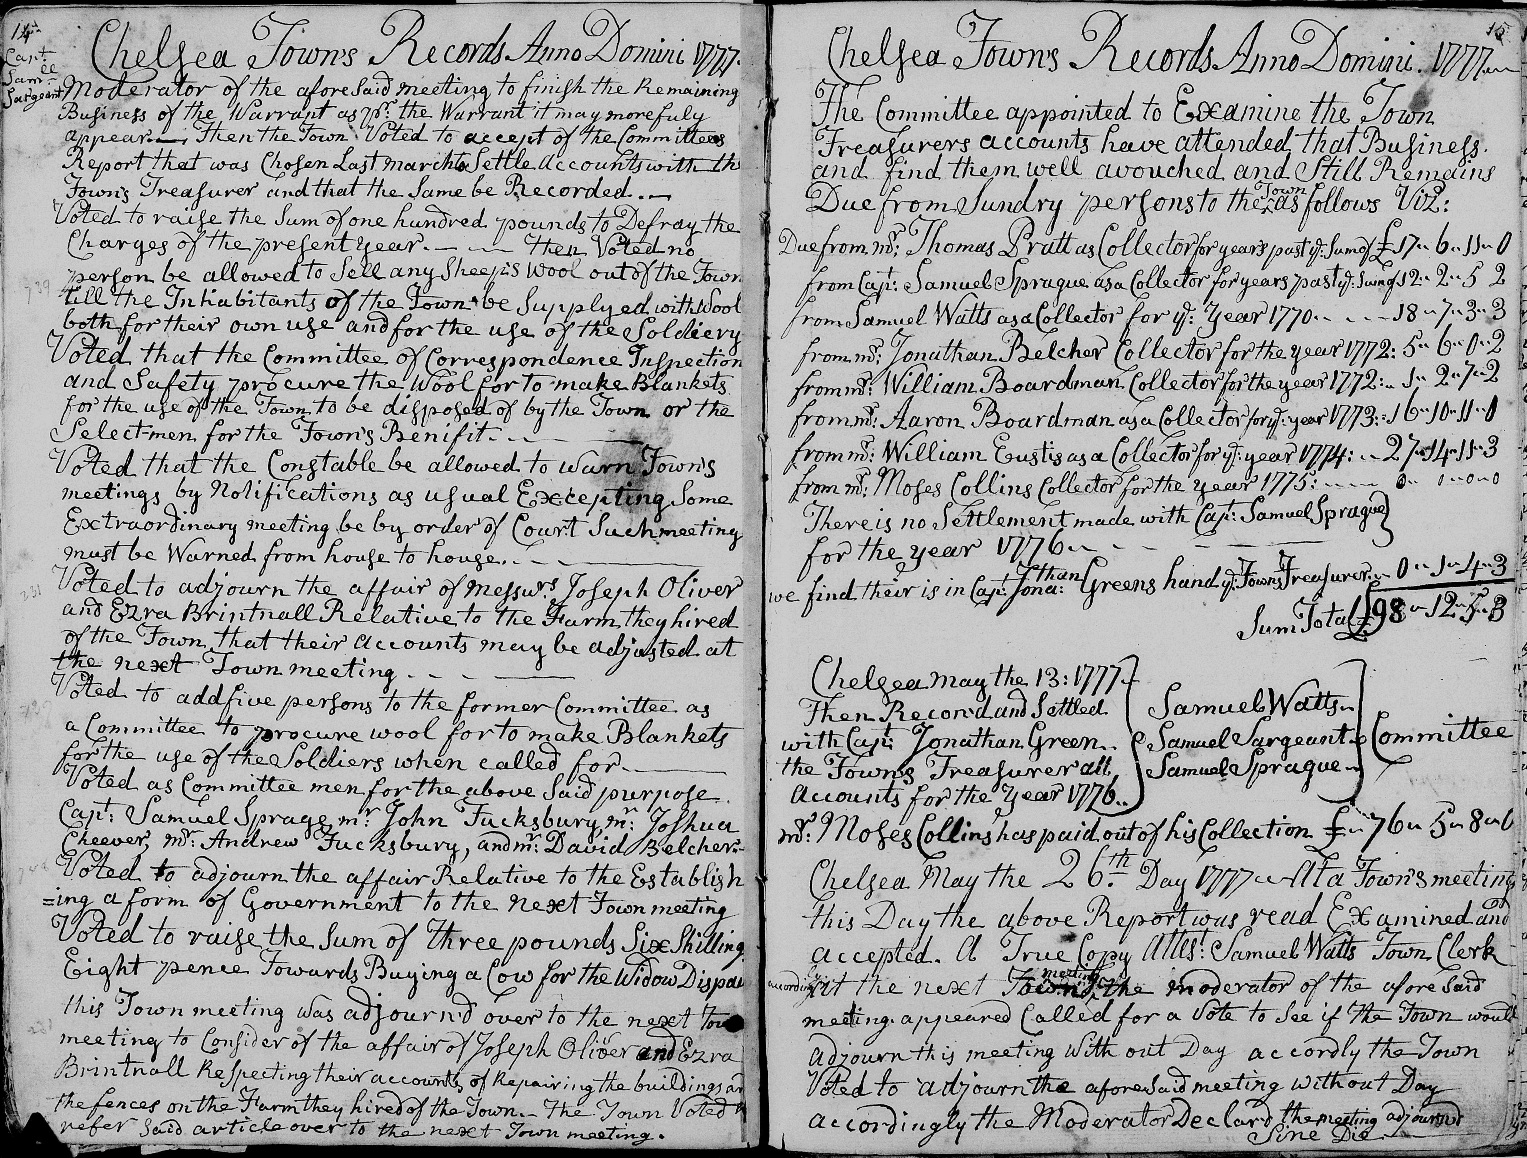 14
Capt.
Samll
Sargeant
Chelsea Town's Records Anno Domini 1777.
Moderator of the aforesaid meeting to finish the Remaining
Business of the Warrant as pr. the Warrant it may more fuly
appear.— Then the Town Voted to accept of the Committees
Report that was Chosen Last march to Settle accounts with th
Town's Treasurer and that the Same be Recorded.—
Voted to raise the Sum of one hundred pounds to Defray the
Charges of the present year.— — Then Voted no
person be allowed to Sell any Sheep's Wool out of the Town
till the Inhabitants of the Town be Supplyed with Wool
both for their own use and for the use of the Soldiery
Voted that the Committee of Correspondence Inspection
and Safety procure the Wool for to make Blankets
for the use of the Town to be disposed of by the Town or the
Selectmen for the Town's Benifit.
Voted that the Constable be allowed to warn Town's
meetings by Notifications as usual Excepting Some
Extraordinary meeting be by order of Court Such meeting
must be Warned from house to house.
Voted to adjourn the affair of Messurs Joseph Oliver
and Ezra Brintnall Relative to the Farm they hired
of the Town that their accounts may be adjusted at
the next Town meeting
Voted to add five persons to the former Committee as
a Committee to procure wool for to make Blankets
for the use of the Soldiers when called for.
Voted as Committee men for the above Said purpose.
Capt: Samuel Sprage mr. John Tucksbury, mr: Joshua
Cheever, mr. Andrew Tucksbury, and mr: David Belcher.
Voted to adjourn the affair Relative to the Establish
=ing a form of Government to the next Town meeting
Voted to raise the Sum of three pounds Six Shilling
Eight pence Towards Buying a Cow for the Widow Dispau
this Town meeting was adjourn'd over to the next Tow
meeting to Consider of the affair of Joseph Oliver and Ezra
Brintnall Respecting their accounts of Repairing the buildings an
the fences on the Farm they hired of the Town.— The Town Voted
refer Said article over to the next Town meeting.
15
Chelsea Town's Records Anno Domini. 1777
The Committee appointed to Examine the Town
Treasurers accounts have attended that Business.
and find them well avouched and Still Remains
Due from Sundry persons to the Town as follows Viz:
Due from mr: Thomas Pratt as Collector for years past ye: Sum of £17 " 6 " 11 " 0
from Capt: Samuel Sprague as a Collector for years past ye: Sum of 12 " 2 " 5 2
from Samuel Watts as a Collector for ye: Year 1770 18 " 7 " 3 " 3
from mr: Jonathan Belcher Collector for the year 1772: 5 " 6 " 0 " 2
from mr: William Boardman Collector for the year 1772: 1 " 2 " 7 " 2
from mr: Aaron Boardman as a Collector for ye: year 1773: 16 " 10 " 11 " 0
from mr: William Eustis as a Collector for ye: year 1774: 27 " 14 " 11 " 3
from mr: Moses Collins Collector for the year 1775: 0 " 1 " 0 " 0
There is no Settlement made with Capt: Samuel Sprague
for the year 1776
we find their is in Capt: Jonathan Greens hand ye: Towns Treasurer 0 " 1 " 4 " 3
Sum Total £98 " 12 " 5 " 3
Chelsea may the 13: 1777
Then Recon'd and Settled
with Capt: Jonathan Green
the Towns Treasurer all
accounts for the year 1776
Samuel Watts
Samuel Sargeant
Samuel Sprague
Committee
mr: Moses Collins has paid out of his Collection £ " 76 " 5 " 8 " 0
Chelsea May the 26th. Day 1777 At a Town's meeting
this Day the above Report was read Examined and
accepted. A True Copy Attest: Samuel Watts Town Clerk
at the next Town's meeting the moderator of the afore Said
meeting appeared Called for a Vote to See if the Town would
adjourn this meeting With out Day accordly the Town
Voted to adjourn the aforesaid meeting without Day
accordingly the Moderator Declar'd the meeting adjourn'd
Sine Die